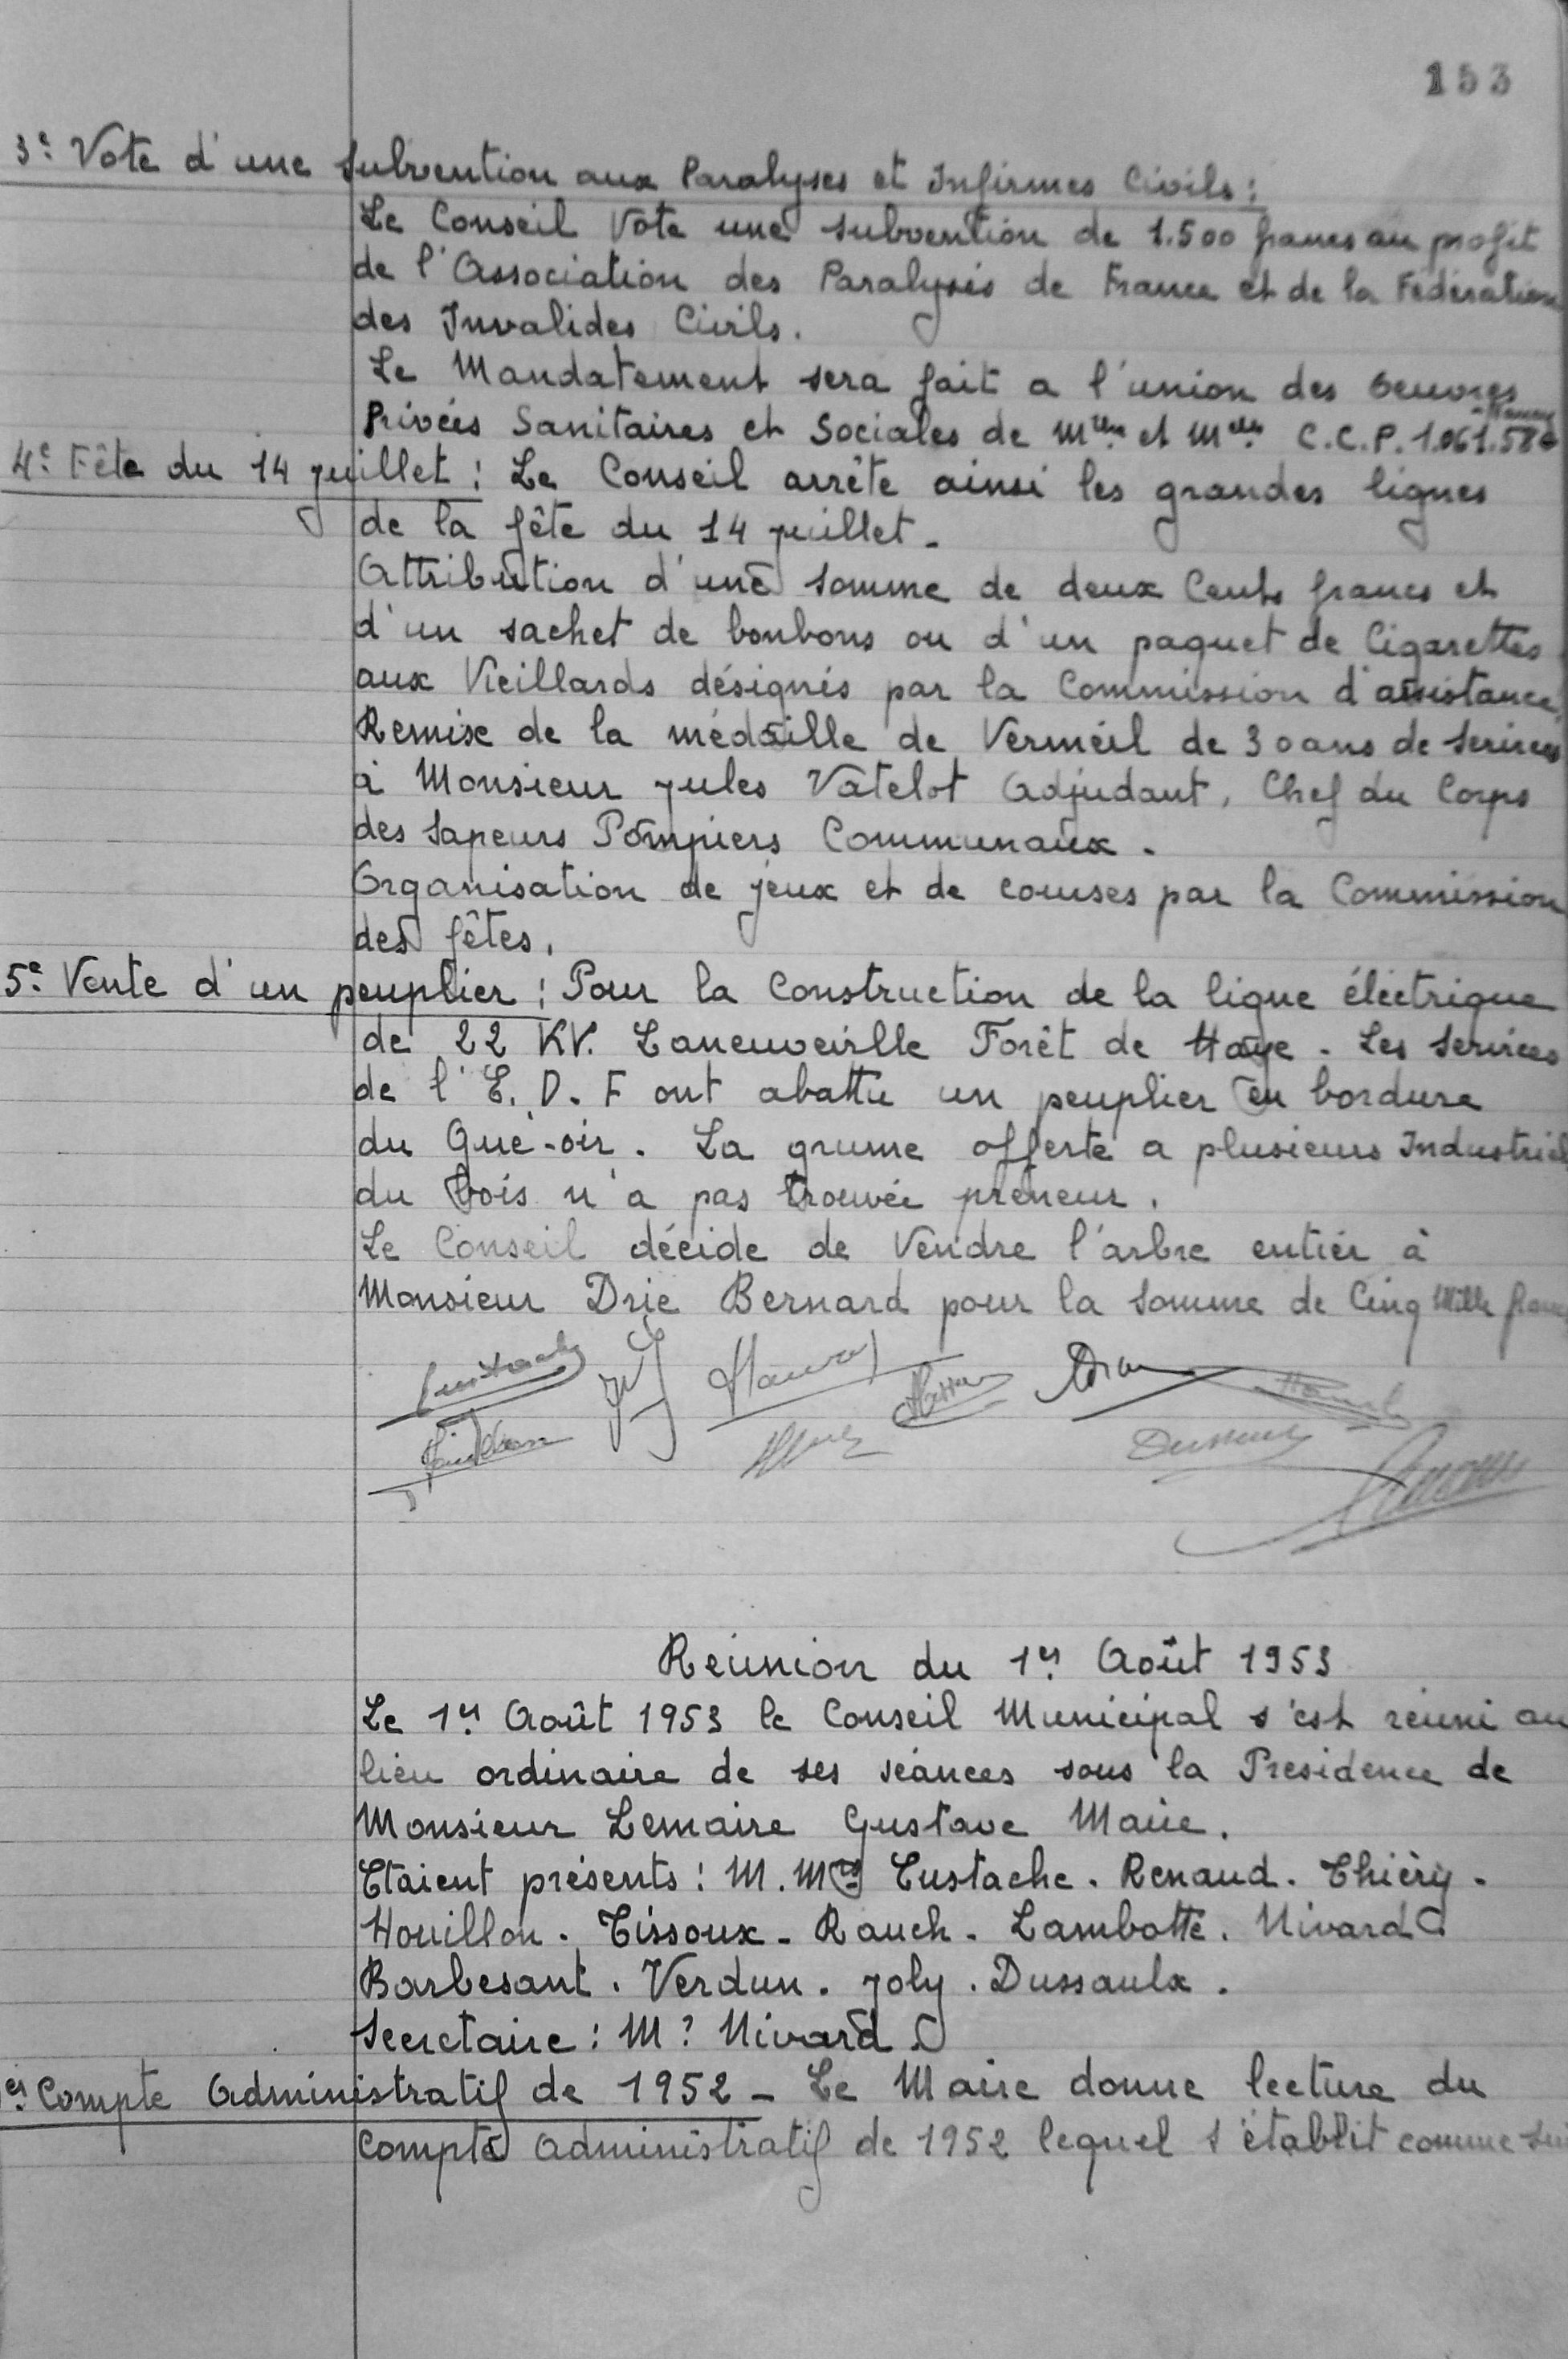 153
3e: Vote d'une subvention aux Paralyses et Infirmes Civils:
Le Conseil Vote une subvention de 1.500 francs au profit
de l'Association des Paralysés de France et de la Fédération
des Invalides Civils.
Le Mandatement sera fait a l'union des Oeuvres
Privées Sanitaires et Sociales de Mthe et Mlle C.C.P. 1.061.58
Nancy
4e: Fête du 14 juillet: Le Conseil arrête ainsi les grandes lignes
de la fête du 14 juillet.
Attribution d'une somme de deux Cents francs et
d'un sachet de bonbons ou d'un paquet de Cigarettes
aux Vieillards désignés par la Commission d'assistance,
Remise de la médaille de Vermeil de 30 ans de services
à Monsieur Jules Vatelot Adjudant, Chef du Corps
des Sapeurs Pompiers Communaux.
Organisation de jeux et de courses par la Commission
des fêtes.
5e: Vente d'un peuplier: Pour la Construction de la ligne éléctrique
de 22 KV. Laneuveville Forêt de Haye. Les Services
de l'E.D.F ont abattu un peuplier en bordure
du Gué-oir. La grume offerte a plusieurs Industriel
du bois n'a pas trouvée preneur.
Le Conseil décide de Vendre l'arbre entier à
Monsieur Drie Bernard pour la somme de Cinq Mille franc
Réunion du 1er Août 1953
Le 1er Août 1953 le Conseil Municipal s'est réuni au
lieu ordinaire de ses séances sous la Presidence de
Monsieur Lemaire Gustave Maire.
Etaient présents: M.Mrs Eustache. Renaud. Thiéry.
Houillon. Tissoux. Rauch. Lambotte. Nivard
Barbesant. Verdun. Joly. Dussaulx.
Secretaire: Mr Nivard
er: Compte Administratif de 1952 - Le Maire donne lecture du
compte administratif de 1952 lequel s'établit comme sui